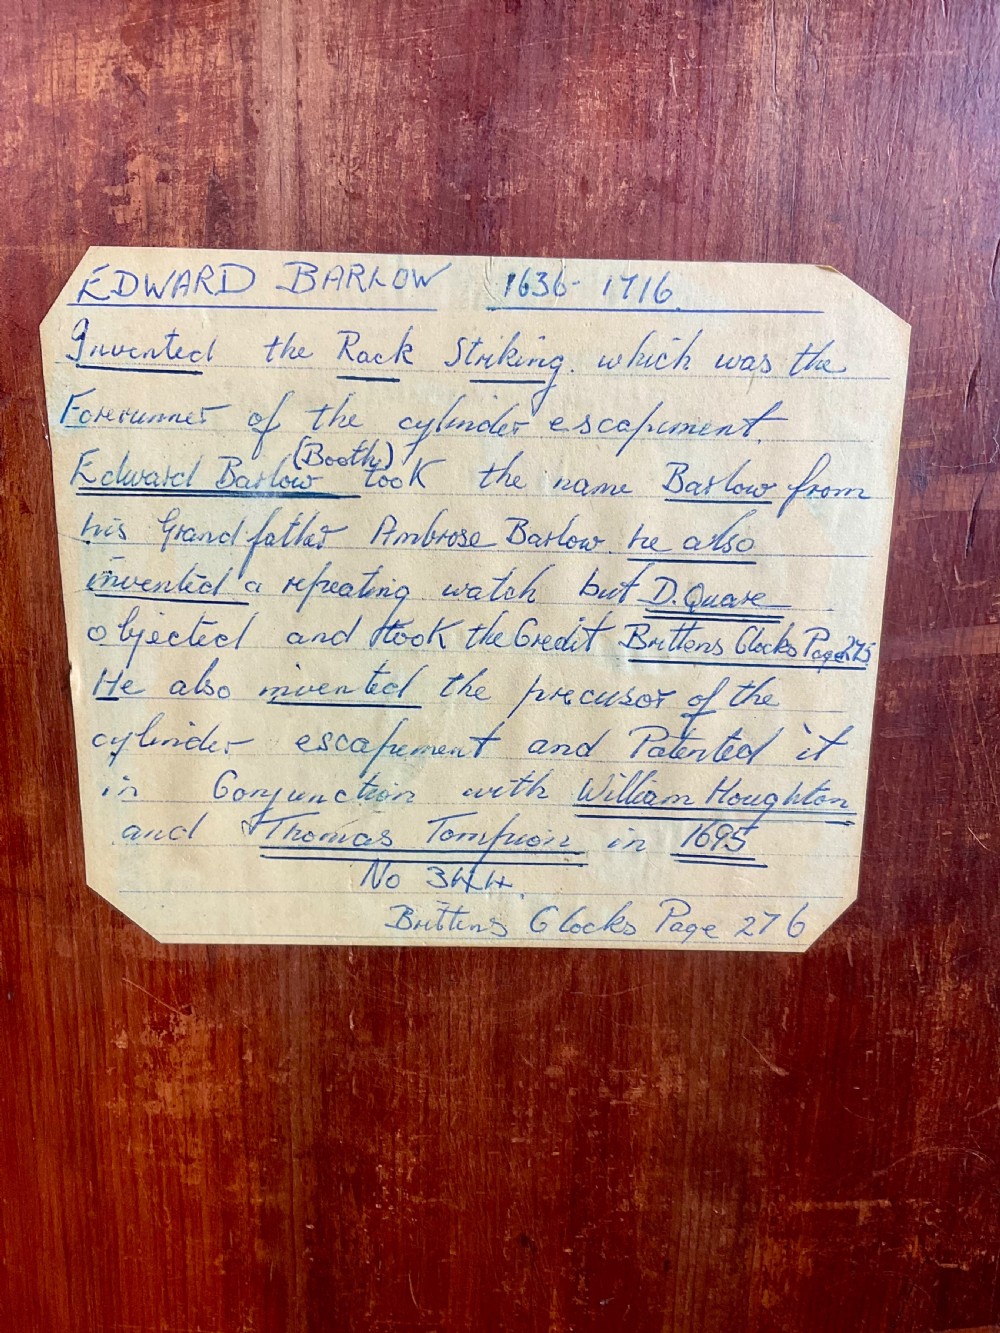 EDWARD BARLOW 1636-1716
Invented the Rack Striking. which was the
Forerunner of the cylinder escapement.
(Booth)
Edward Barlow took the name Barlow from
his Grandfather Ambrose Barlow he also
invented a repeating watch but D. Quare
objected and took the Credit Brittens Clocks Page 275
He also invented the precusor of the
cylinder escapement and Patented it
in Conjunction with William Houghton
and Thomas Tompion in 1695
No 344.
Brittens Clocks Page 276